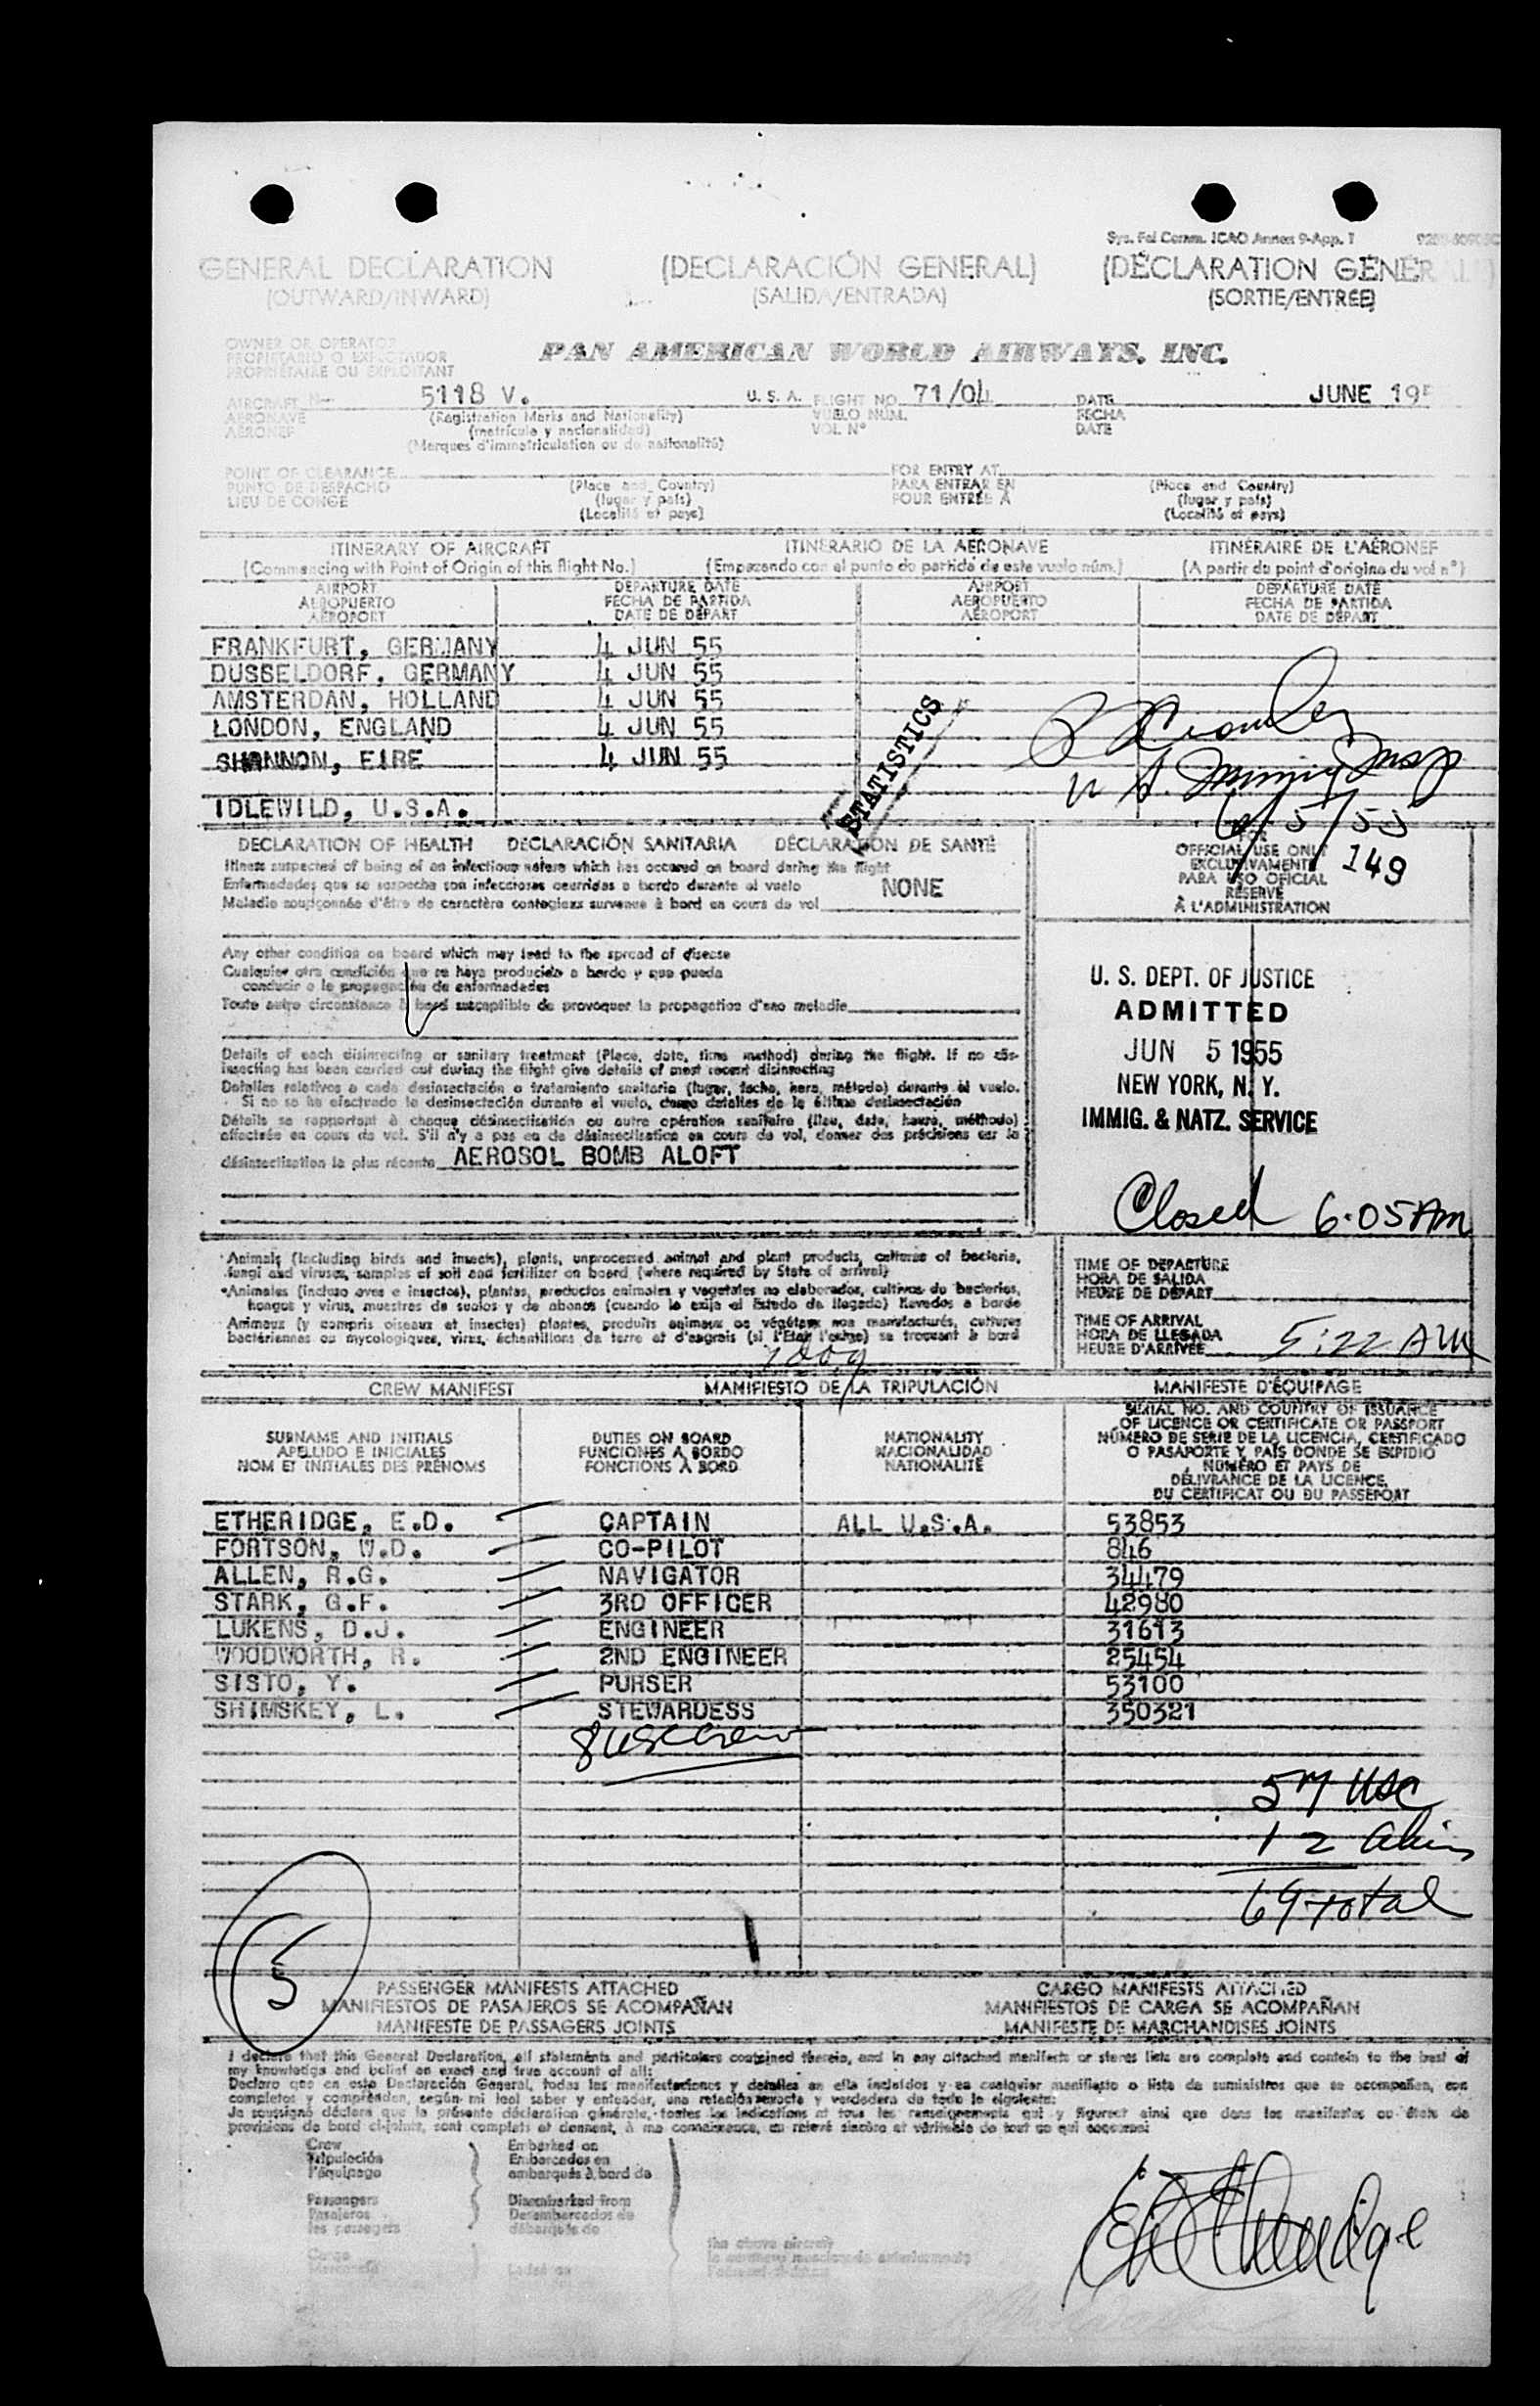 Sys. Fal Comm. ICAO Annex 9-App. 1
GENERAL DECLARATION (DECLARACIÓN GENERAL) (DÉCLARATION GÉNÉRALE)
(OUTWARD/INWARD) (SALIDA/ENTRADA) (SORTIE/ENTREE)
OWNER OR OPERATOR
PROPIETARIO O EXPLOTADOR
PROPRIÉTAIRE OU EXPLOITANT
PAN AMERICAN WORLD AIRWAYS, INC.
AIRCRAFT N- 5118 V. U. S. A. FLIGHT NO. 71/04 DATE JUNE 195
AERONAVE (Registration Marks and Nationality) VUELO NÚM. FECHA
AÉRONEF (matrícula y nacionalidad) VOL Nº DATE
(Marques d'immatriculation ou de nationalité)
POINT OF CLEARANCE FOR ENTRY AT
PUNTO DE DESPACHO (Place and Country) PARA ENTRAR EN (Place and Country)
LIEU DE CONGÉ (lugar y país) POUR ENTRÉE À (lugar y país)
(Localité et pays) (Localité et pays)
ITINERARY OF AIRCRAFT ITINERARIO DE LA AERONAVE ITINÉRAIRE DE L'AÉRONEF
(Commencing with Point of Origin of this flight No.) (Empezando con el punto de partida de este vuelo núm.) (A partir du point d'origine du vol nº)
AIRPORT DEPARTURE DATE AIRPORT DEPARTURE DATE
AEROPUERTO FECHA DE PARTIDA AEROPUERTO FECHA DE PARTIDA
AÉROPORT DATE DE DÉPART AÉROPORT DATE DE DÉPART
FRANKFURT, GERMANY 4 JUN 55
DUSSELDORF, GERMANY 4 JUN 55
AMSTERDAN, HOLLAND 4 JUN 55
LONDON, ENGLAND 4 JUN 55
SHANNON, EIRE 4 JUN 55
IDLEWILD, U.S.A.
STATISTICS
Crowley
U. S. Immig Insp
6/5/55
DECLARATION OF HEALTH DECLARACIÓN SANITARIA DÉCLARATION DE SANTÉ
Illness suspected of being of an infectious nature which has occured on board during the flight
Enfermedades que se sospecha son infecciosas ocurridas a bordo durante el vuelo NONE
Maladie soupçonnée d'être de caractère contagieux survenue à bord en cours de vol
FOR
OFFICIAL USE ONLY
EXCLUSIVAMENTE
PARA USO OFICIAL
RÉSERVÉ
À L'ADMINISTRATION
149
Any other condition on board which may lead to the spread of disease
Cualquier otra condición que se haya producido a bordo y que pueda
conducir a la propagación de enfermedades
Toute autre circonstance à bord susceptible de provoquer la propagation d'une maladie
U. S. DEPT. OF JUSTICE
ADMITTED
JUN 5 1955
NEW YORK, N. Y.
IMMIG. & NATZ. SERVICE
Closed 6:05 AM
Details of each disinsecting or sanitary treatment (Place, date, time method) during the flight. If no dis-
insecting has been carried out during the flight give details of most recent disinsecting
Detalles relativos a cada desinsectación o tratamiento sanitario (lugar, fecha, hora, método) durante el vuelo.
Si no se ha efectuado la desinsectación durante el vuelo, dense detalles de la última desinsectación
Détails se rapportant à chaque désinsectisation ou autre opération sanitaire (lieu, date, heure, méthode)
effectuée en cours de vol. S'il n'y a pas eu de désinsectisation en cours de vol, donner des précisions sur la
désinsectisation la plus récente AEROSOL BOMB ALOFT
Animals (including birds and insects), plants, unprocessed animal and plant products, cultures of bacteria,
fungi and viruses, samples of soil and fertilizer on board (where required by State of arrival)
Animales (incluso aves e insectos), plantas, productos animales y vegetales no elaborados, cultivos de bacterias,
hongos y virus, muestras de suelos y de abonos (cuando lo exija el Estado de llegada) llevados a bordo
Animaux (y compris oiseaux et insectes) plantes, produits animaux ou végétaux non manufacturés, cultures
bactériennes ou mycologiques, virus, échantillons de terre et d'engrais (si l'Etat l'exige) se trouvant à bord
1 dog
TIME OF DEPARTURE
HORA DE SALIDA
HEURE DE DÉPART
TIME OF ARRIVAL
HORA DE LLEGADA
HEURE D'ARRIVÉE 5:22 AM
CREW MANIFEST MANIFIESTO DE LA TRIPULACIÓN MANIFESTE D'ÉQUIPAGE
SURNAME AND INITIALS
APELLIDO E INICIALES
NOM ET INITIALES DES PRÉNOMS
DUTIES ON BOARD
FUNCIONES A BORDO
FONCTIONS À BORD
NATIONALITY
NACIONALIDAD
NATIONALITÉ
SERIAL NO. AND COUNTRY OF ISSUANCE
OF LICENCE OR CERTIFICATE OR PASSPORT
NÚMERO DE SERIE DE LA LICENCIA, CERTIFICADO
O PASAPORTE Y PAÍS DONDE SE EXPIDIÓ
NUMÉRO ET PAYS DE
DÉLIVRANCE DE LA LICENCE,
DU CERTIFICAT OU DU PASSEPORT
ETHERIDGE, E.D. CAPTAIN ALL U.S.A. 53853
FORTSON, W.D. CO-PILOT 846
ALLEN, R.G. NAVIGATOR 34479
STARK, G.F. 3RD OFFICER 42980
LUKENS, D.J. ENGINEER 31613
WOODWORTH, R. 2ND ENGINEER 25454
SISTO, Y. PURSER 53100
SHIMSKEY, L. STEWARDESS 350321
8 USC Crew
57 USC
12 alien
69 total
5
PASSENGER MANIFESTS ATTACHED CARGO MANIFESTS ATTACHED
MANIFIESTOS DE PASAJEROS SE ACOMPAÑAN MANIFIESTOS DE CARGA SE ACOMPAÑAN
MANIFESTE DE PASSAGERS JOINTS MANIFESTE DE MARCHANDISES JOINTS
I declare that this General Declaration, all statements and particulars contained therein, and in any attached manifests or stores lists are complete and contain to the best of
my knowledge and belief an exact and true account of all:
Declaro que en esta Declaración General, todas las manifestaciones y detalles en ella incluidos y en cualquier manifiesto o lista de suministros que se acompañen, son
completos y comprenden, según mi leal saber y entender, una relación exacta y verdadera de todo lo siguiente:
Je soussigné déclare que la présente déclaration générale, toutes les indications et tous les renseignements qui y figurent ainsi que dans les manifestes ou états de
provisions de bord ci-joints, sont complets et donnent, à ma connaissance, un relevé sincère et véritable de tout ce qui concerne:
Crew Embarked on
Tripulación Embarcados en
l'équipage embarqués à bord de
Passengers Disembarked from
Pasajeros Desembarcados de
les passagers débarqués de
Cargo the above aircraft
Mercancía Laded on la aeronave mencionada anteriormente
E D Etheridge